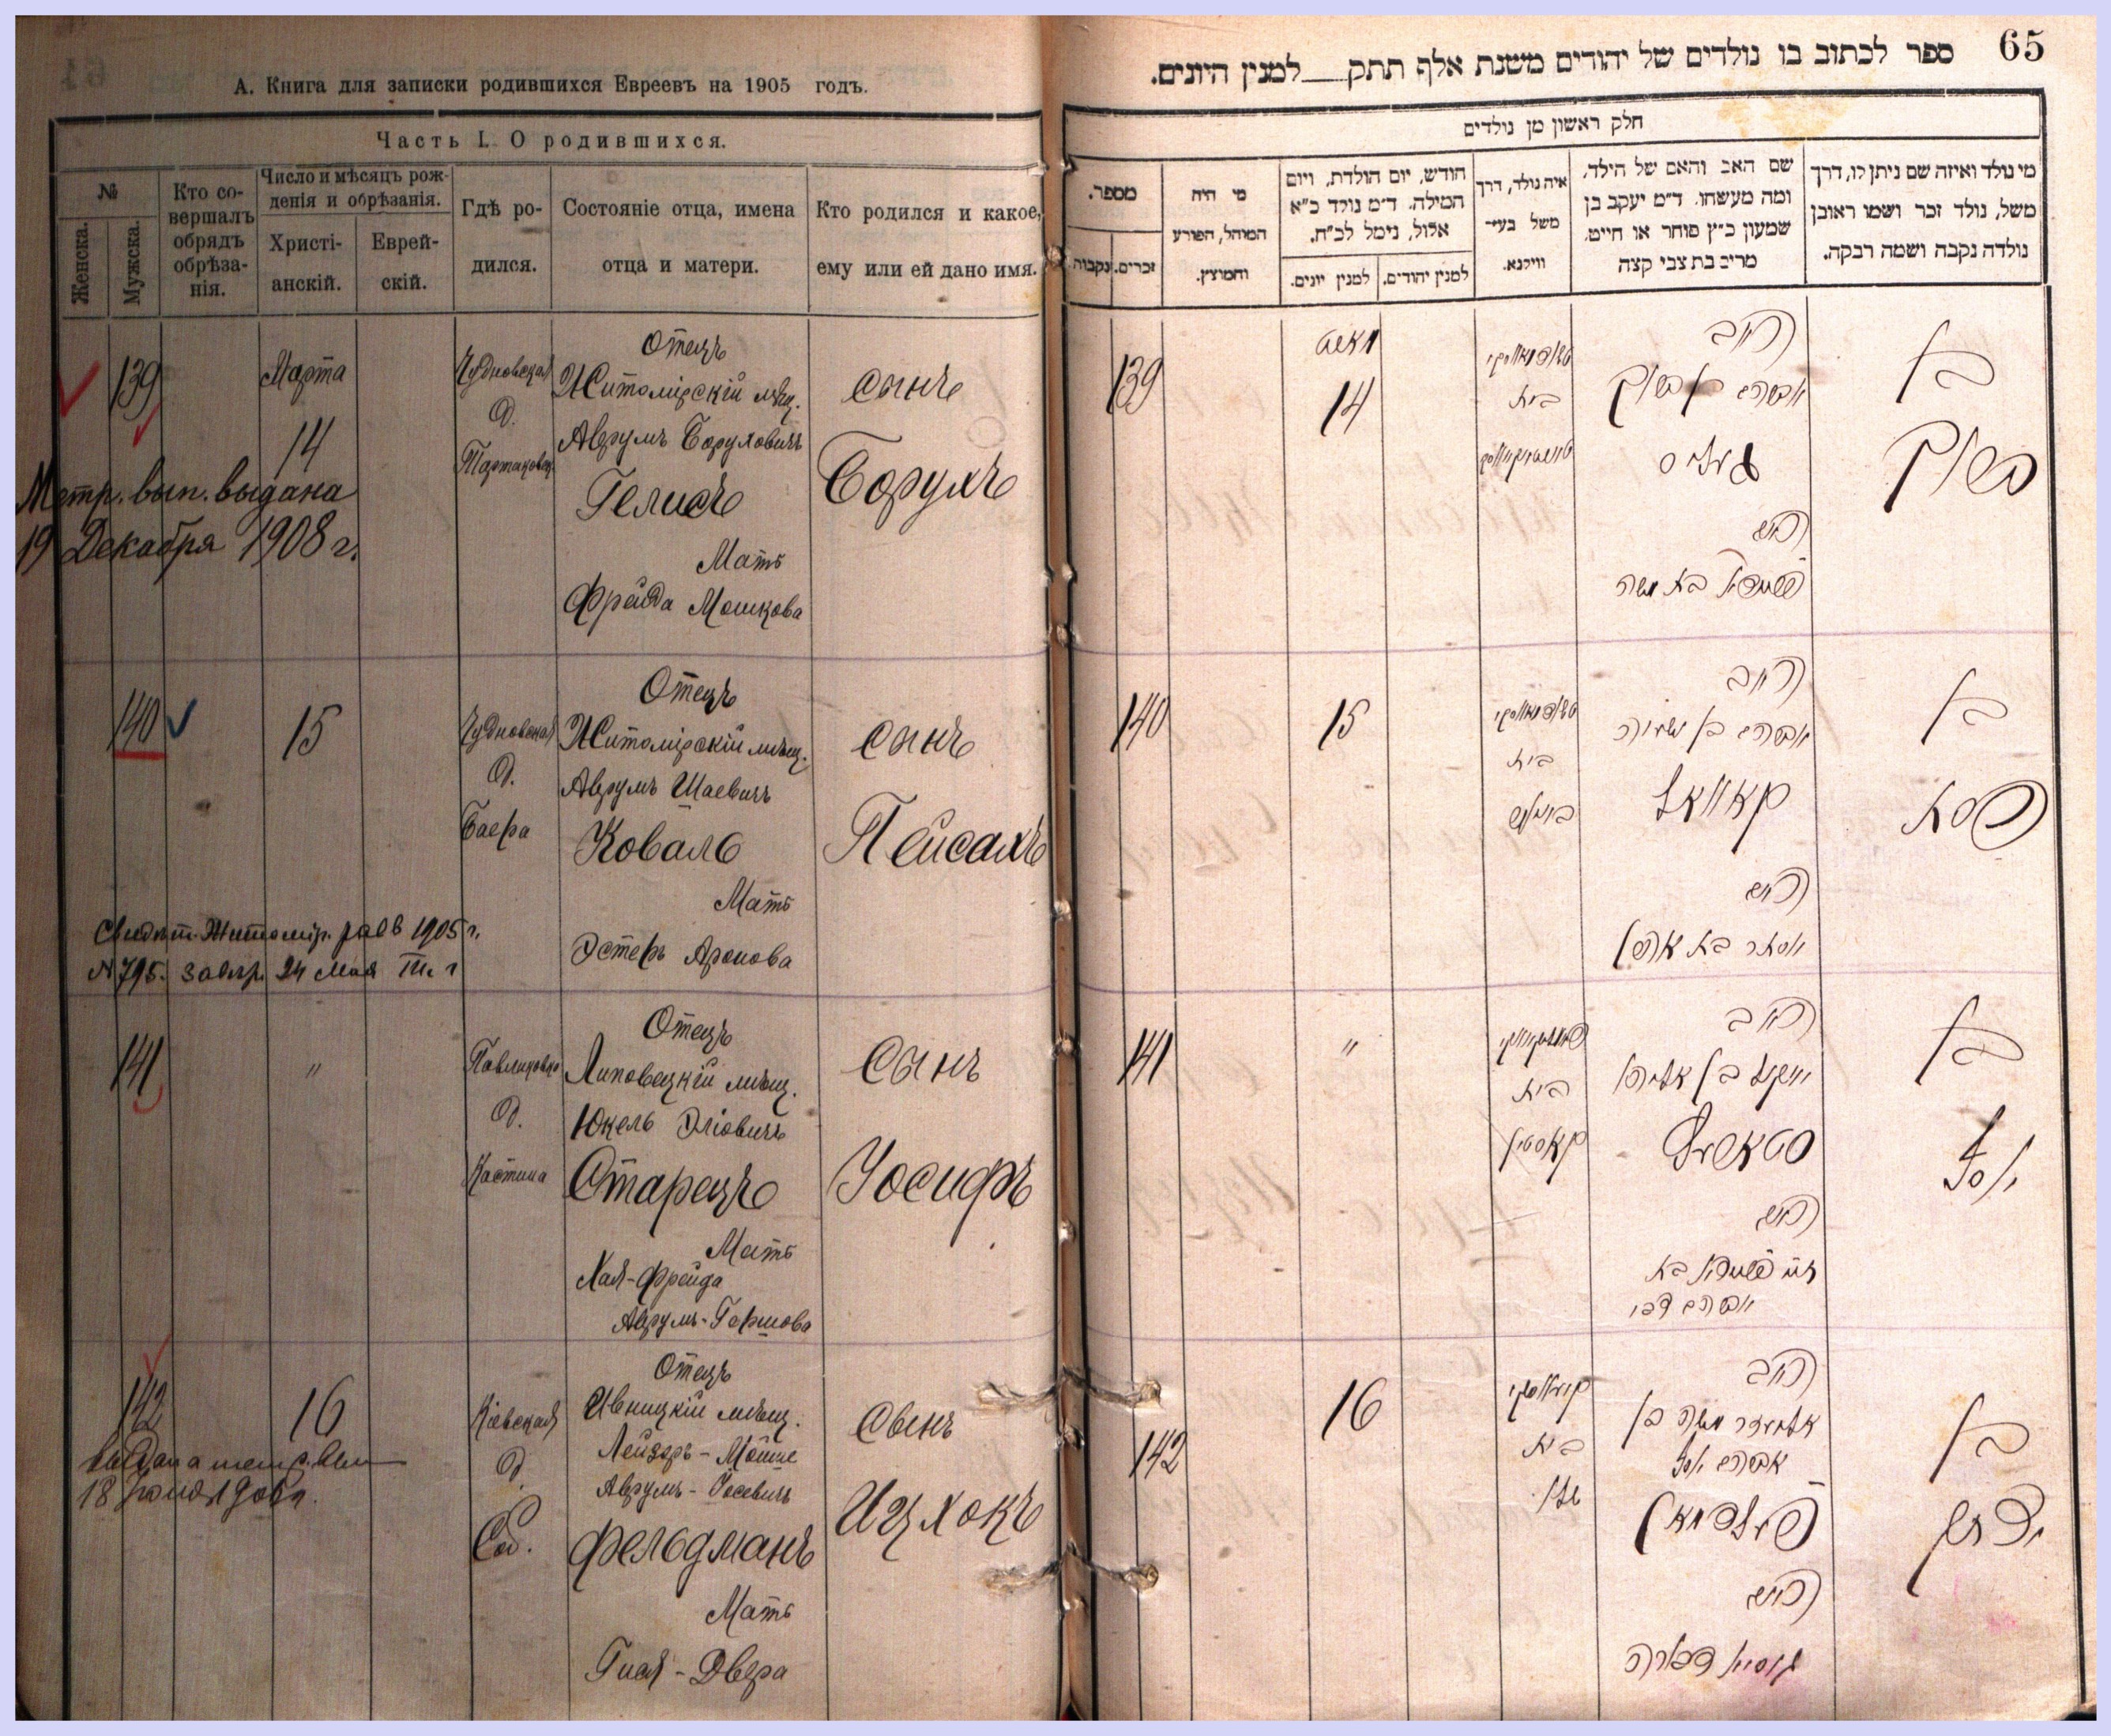 А. Книга для записки родившихся Евреевъ на 1905 годъ.
Часть I. О родившихся.
№
Женска.
Мужска.
Кто со-
вершалъ
обрядъ
обрѣза-
нія.
Число и мѣсяцъ рож-
денія и обрѣзанія.
Христі-
анскій.
Еврей-
скій.
Гдѣ ро-
дился.
Состояніе отца, имена
отца и матери.
Кто родился и какое,
ему или ей дано имя.
139
Марта
14
Метр. вып. выдана
19 Декабря 1908 г.
Чудновская
д.
Отецъ
Житомірскій мѣщ.
Аврумъ Боруховичъ
Гелисъ
Мать
Фрейда Мошкова
сынъ
Борухъ
140
15
Чудновская
д.
Баера
Отецъ
Житомірскій мѣщ.
Аврумъ Шаевичъ
Коваль
Мать
Эстеръ Аронова
сынъ
Пейсахъ
1905 г.
№ 795. 24 мая
141
"
"
д.
Костина
Отецъ
Липовецкій мѣщ.
Юкель Эліовичъ
Старецъ
Мать
Хая-Фрейда
Аврумъ-Гершова
Сынъ
Іосифъ
142
16
выдана
18
Кіевская
д.
Соб.
Отецъ
Ивницкій мѣщ.
Лейзоръ-Мойше
Аврумъ-Іосевичъ
Фельдманъ
Мать
Гися-Двейра
Сынъ
Ицхокъ
65
ספר לכתוב בו נולדים של יהודים משנת אלף תתק___למנין היונים.
חלק ראשון מן נולדים
מספר.
נקבות
זכרים.
מי היה
המוהל, הפורע
והמוצץ.
חודש, יום הולדת, ויום
המילה. ד״מ נולד כ״א
אלול, נימל לכ״ח.
למנין יונים.
למנין יהודים.
איה נולד, דרך
משל בעיר
ווילנא.
שם האב והאם של הילד,
ומה מעשהו. ד״מ יעקב בן
שמעון כ״ץ סוחר או חייט,
מרים בת צבי קצה
מי נולד ואיזה שם ניתן לו, דרך
משל, נולד זכר ושמו ראובן
נולדה נקבה ושמה רבקה.
139
מארט
14
בית
האב
אברהם בן ברוך
געליס
האם
פריידא בת משה
בן
ברוך
140
15
בית
האב
אברהם בן ישעיה
קאוואל
האם
אסתר בת אהרן
בן
פסח
141
"
בית
קאסטין
האב
יוקעל בן אליהו
סטארעץ
האם
חיה פריידא בת
אברהם צבי
בן
יוסף
142
16
בית
האב
אליעזר משה בן
אברהם יוסף
פעלדמאן
האם
גיסיא דבורה
בן
יצחק